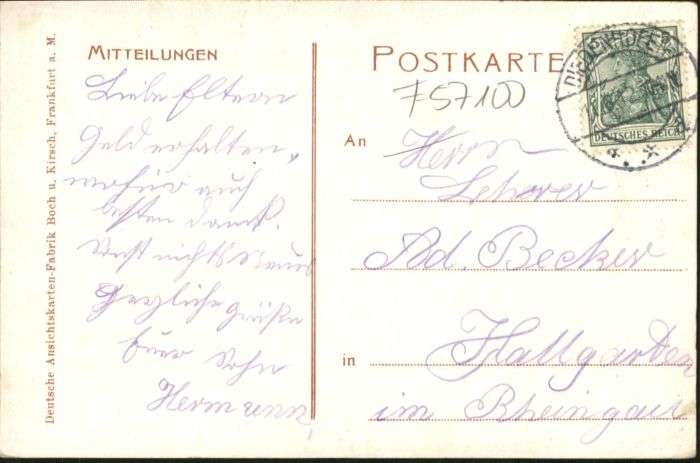 Deutsche Ansichtskarten-Fabrik Boch u. Kirsch, Frankfurt a. M.
MITTEILUNGEN
Liebe Eltern
Geld erhalten,
wofür auch
besten Dank.
Sonst nichts Neues
Herzliche Grüße
Euer Sohn
Hermann
POSTKARTE
757100
DEUTSCHES REICH
An
Herrn
Lehrer
Ad. Becker
in
Hallgarten
im Rheingau